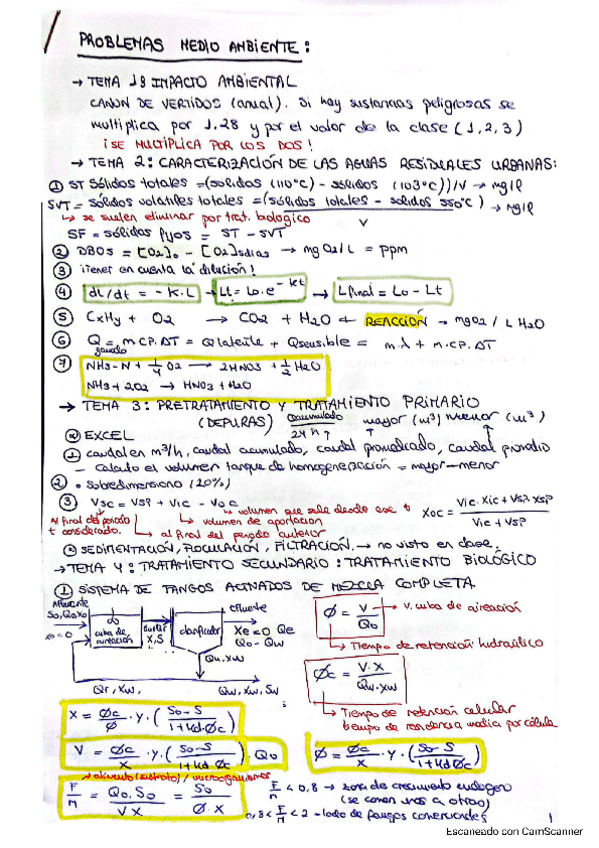 PROBLEMAS MEDIO AMBIENTE:
→ TEMA 1: IMPACTO AMBIENTAL
CANON DE VERTIDOS (anual). Si hay sustancias peligrosas se
multiplica por 1.28 y por el valor de la clase (1, 2, 3)
¡SE MULTIPLICA POR LOS DOS!
→ TEMA 2: CARACTERIZACIÓN DE LAS AGUAS RESIDUALES URBANAS:
① ST Sólidos totales = (solidos (110°C) - sólidos (103°C))/V → mg/l
SVT = Sólidos volatiles totales = (sólidos totales - solidos 550°C) → mg/l
V
↳ se suelen eliminar por trat. biologico
SF = sólidos fijos = ST - SVT
② DBO5 = [O2]0 - [O2]5dias → mg O2/L = ppm
③ ¡Tener en cuenta la dilución!
④ dL/dt = -K.L → Lt = Lo.e^-kt → Lfinal = Lo - Lt
⑤ CxHy + O2 → CO2 + H2O ← REACCIÓN → mgO2 / L H2O
⑥ Q = m.CP.ΔT = Qlatente + Qsensible = m.λ + m.CP.ΔT
ganado
⑦ NH3-N + 1/4 O2 → 2HNO3 + 1/2 H2O
NH3 + 2O2 → HNO3 + H2O
→ TEMA 3: PRETRATAMIENTO Y TRATAMIENTO PRIMARIO
(DEPURAS) acumulado / 24 h mayor (m³) menor (m³)
EXCEL
① caudal en m³/h, caudal acumulado, caudal promediado, caudal promedio
- Calculo el volumen tanque de homogeneización = mayor - menor
② • Sobredimensiono (20%)
③ VSC = VSP + Vic - VOC → volumen que sale desde ese t
Xoc = Vic.Xic + VSP.XSP / Vic + VSP
Al final del periodo
t considerado.
↳ volumen de aportacion
↳ al final del periodo anterior
SEDIMENTACIÓN, FLOCULACIÓN, FILTRACIÓN. → no visto en clase.
→ TEMA 4: TRATAMIENTO SECUNDARIO: TRATAMIENTO BIOLÓGICO
① SISTEMA DE FANGOS ACTIVADOS DE MEZCLA COMPLETA
So, Qo, Xo
Xo = 0
cuba de aireación
X, S
clarificador
efluente
Xe = 0 Qe
Qo - Qw
Qu, Xw
Qr, Xw,
Qw, Xw, Sw
Ø = V / Qo → V. cuba de aireación
↳ Tiempo de retención hidraúlico
Øc = V.X / Qw.Xw
↳ Tiempo de retención celular
tiempo de residencia media por célula
X = Øc/Ø . Y . (So - S / 1 + Kd.Øc)
V = Øc/X . Y . (So - S / 1 + Kd.Øc) . Qo
Ø = Øc/X . Y . (So - S / 1 + Kd.Øc)
→ alimento (sustrato) / microorganismos
F/M = Qo.So / VX = So / Ø X
F/M < 0,8 → zona de crecimiento endogeno
(se comen unos a otros)
0,8 < F/M < 2 - lodo de fangos convencionales
1
Escaneado con CamScanner